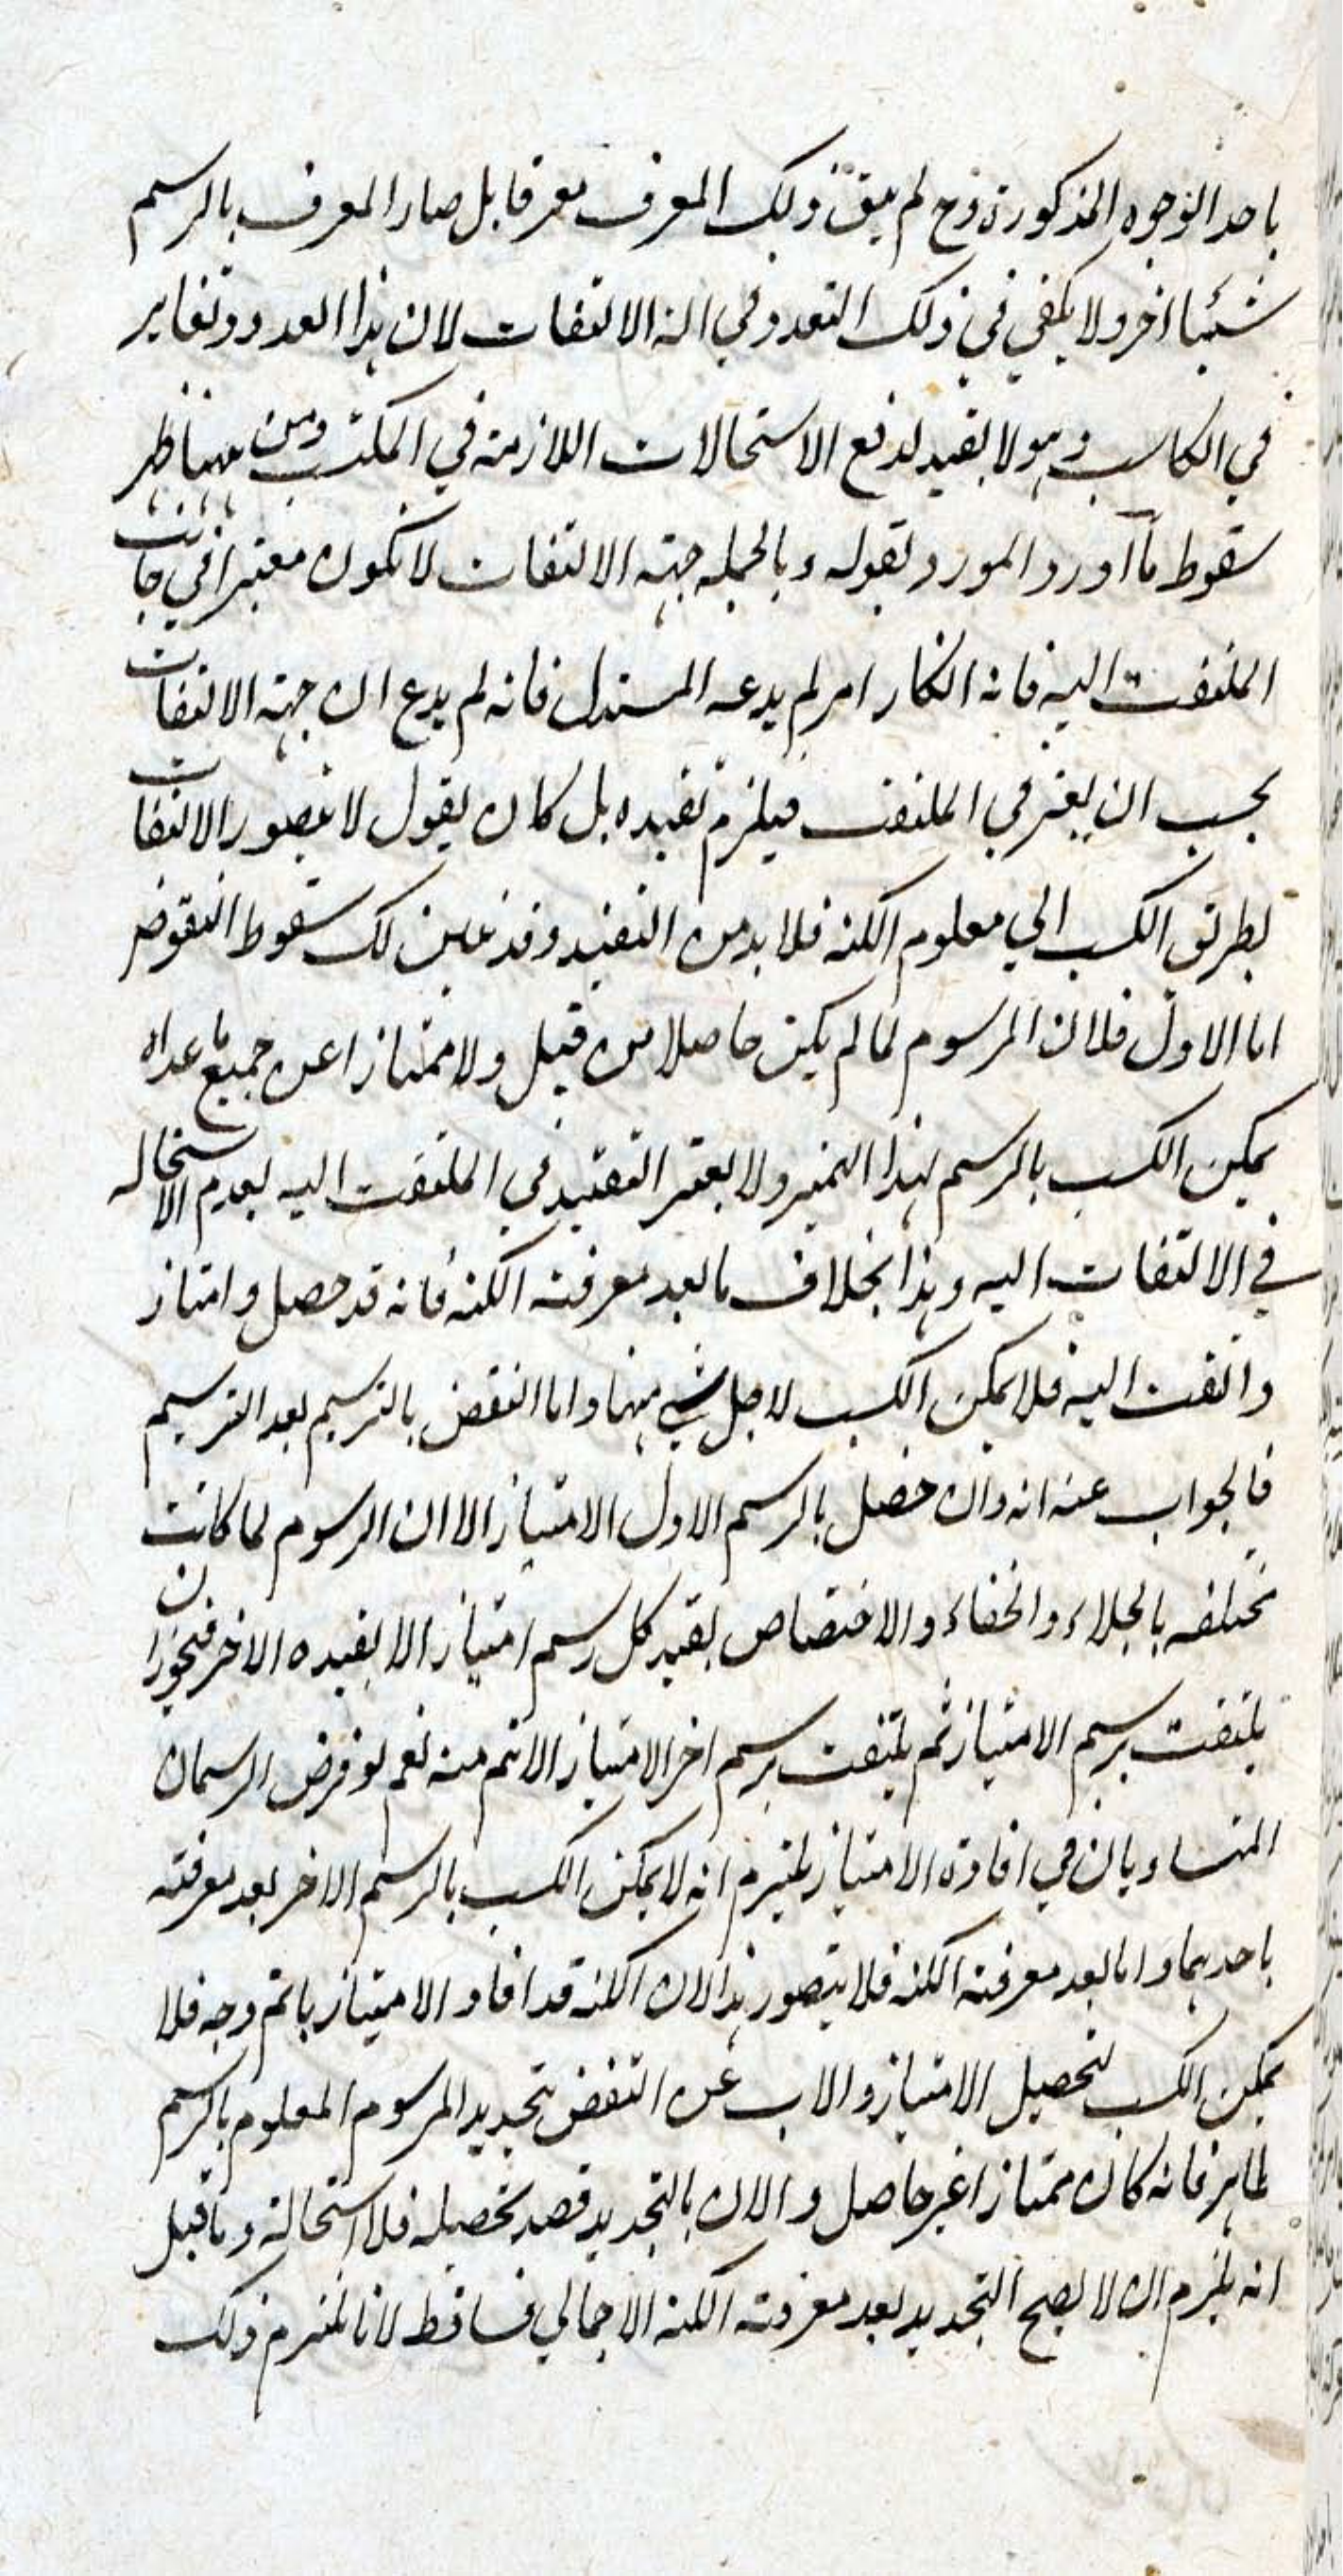 باحد الوجوه المذكورة وح لم يبق ذلك المعرف معرفا بل صار المعرف بالرسم
شيئا اخر ولا يكفي في ذلك التعدد في الة الالتفات لان هذا العدد وتغاير
في الكاسب وهو لا يفيد لدفع الاستحالات اللازمة في المكتسب ومن ههنا ظهر
سقوط ما آورد المورد بقوله وبالجمله جهة الالتفات لا تكون معتبرا في جانب
الملتفت اليه فانه انكار امر لم يدعه المستدل فانه لم يدع ان جهة الالتفات
يجب ان يعتبر في الملتفت فيلزم تقيده بل كان يقول لا يتصور الالتفات
بطريق الكسب الي معلوم الكنه فلا بد من التقييد وقد علمت لك سقوط النقوض
اما الاول فلان المرسوم لما لم يكن حاصلا من قبل ولا ممتازا عن جميع ما عداه
يمكن الكسب بالرسم لهذا التميز ولا يعتبر التقييد في الملتفت اليه لعدم الاستحاله
في الالتفات اليه وهذا بخلاف ما بعد معرفته الكنه فانه قد حصل وامتاز
والتفت اليه فلا يمكن الكسب لاجل شي منها واما النقض بالترسيم بعد الترسيم
فالجواب عنه انه وان حصل بالرسم الاول الامتياز الا ان الرسوم لما كانت
مختلفه بالجلاء والخفاء والاختصاص يفيد كل رسم امتياز الا يفيده الاخر فيجوز ان
يلتفت برسم الامتياز ثم يلتفت برسم اخر الامتياز الاتم منه نعم لو فرض الرسمان
المتساويان في افادة الامتياز يلتزم انه لا يمكن الكسب بالرسم الاخر بعد معرفته
باحدهما واما بعد معرفته الكنه فلا يتصور هذا لان الكنه قد افاد الامتياز باتم وجه فلا
يمكن الكسب لتحصيل الامتياز والاب عن النقض بتجديد المرسوم المعلوم بالرسم
ظاهر فانه كان ممتازا غير حاصل والان بالتجديد قصد تحصيله فلا استحالة وما قيل
انه يلزم ان لا يصح التجديد بعد معرفته الكنه الاجمالي فساقط لانا نلتزم ذلك